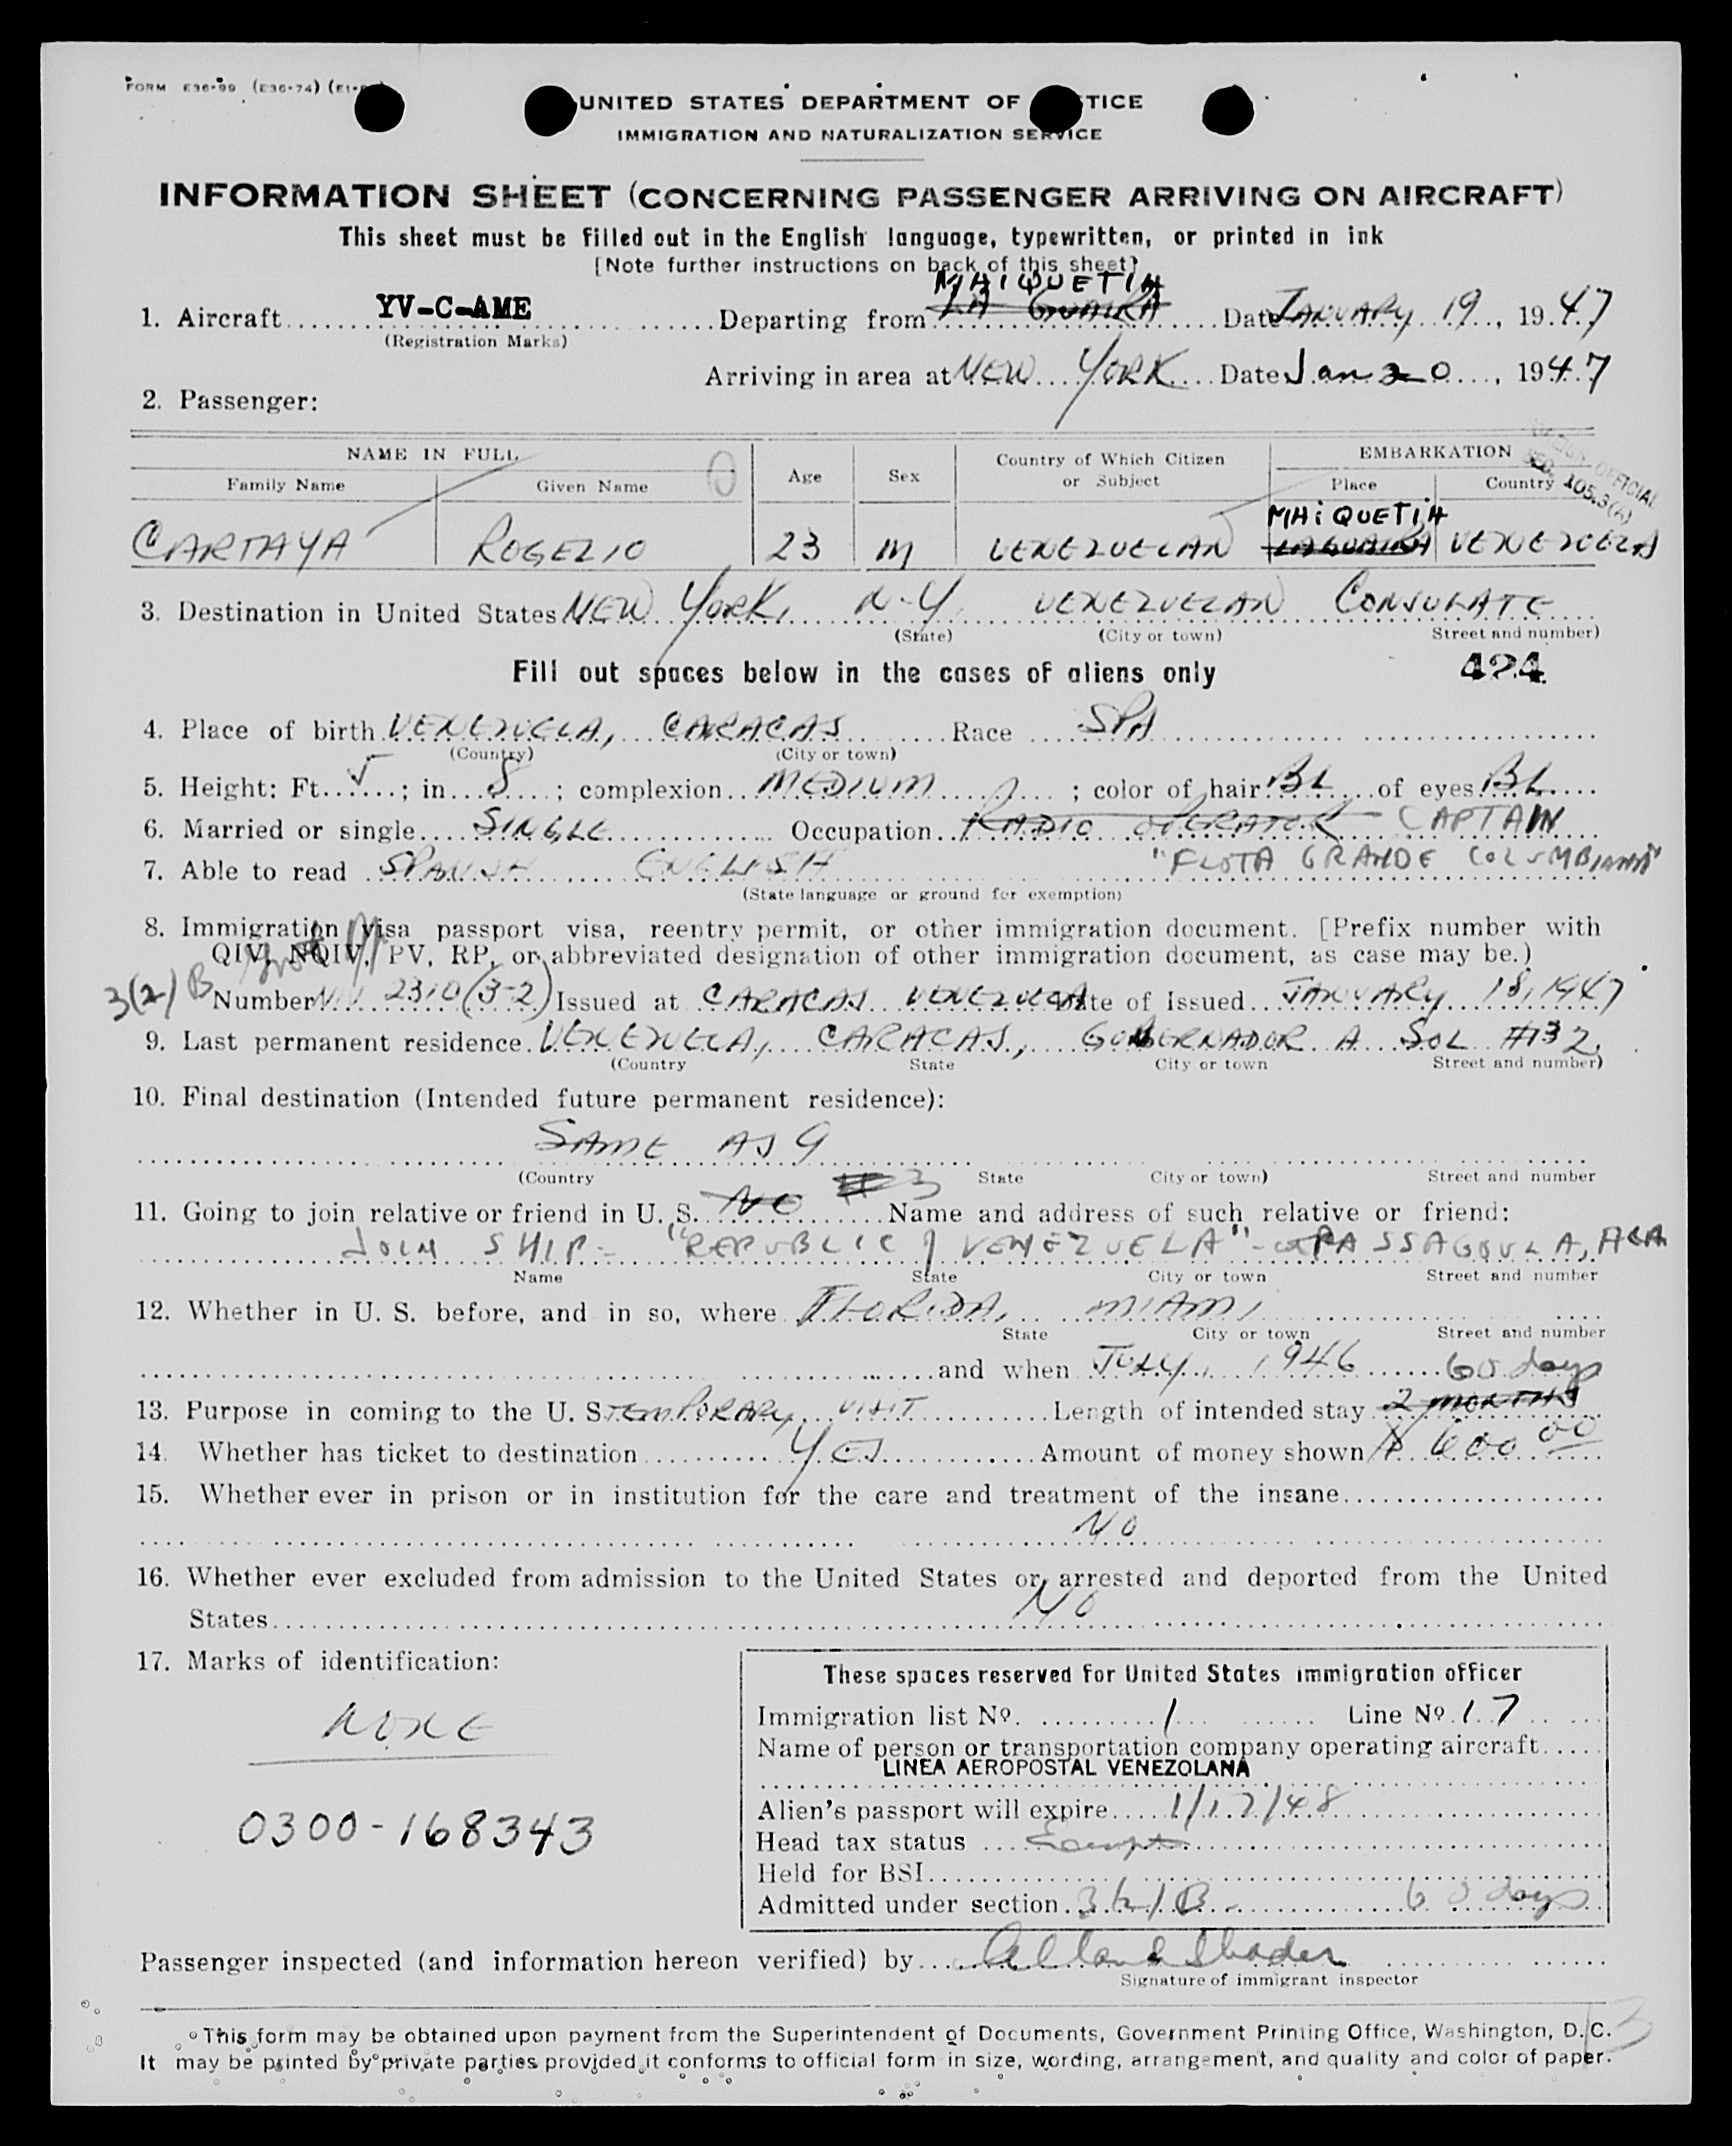 FORM E36-99 (E36-74) (E1-
UNITED STATES DEPARTMENT OF TICE
IMMIGRATION AND NATURALIZATION SERVICE
INFORMATION SHEET (CONCERNING PASSENGER ARRIVING ON AIRCRAFT)
This sheet must be filled out in the English language, typewritten, or printed in ink
[Note further instructions on back of this sheet]
MAIQUETIA
1. Aircraft YV-C-AME Departing from LA GUAIRA Date JANUARY 19, 1947
(Registration Marks)
Arriving in area at NEW YORK Date Jan 20, 1947
2. Passenger:
NAME IN FULL EMBARKATION
Family Name Given Name Age Sex Country of Which Citizen or Subject Place Country
SEC. 105.3(A) OFFICIAL
MAIQUETIA
CARTAYA ROGELIO 23 M VENEZUELAN LAGUAIRA VENEZUELA
3. Destination in United States NEW YORK, N-Y. VENEZUELAN CONSULATE
(State) (City or town) Street and number)
Fill out spaces below in the cases of aliens only 424
4. Place of birth VENEZUELA, CARACAS Race SPA
(Country) (City or town)
5. Height: Ft. 5; in. 8; complexion MEDIUM; color of hair BL of eyes BL
6. Married or single SINGLE Occupation RADIO OPERATOR - CAPTAIN
7. Able to read SPANISH ENGLISH "FLOTA GRANDE COLUMBIANA"
(State language or ground for exemption)
8. Immigration visa passport visa, reentry permit, or other immigration document. [Prefix number with
QIV, NQIV, PV, RP, or abbreviated designation of other immigration document, as case may be.)
3(2) B Number 2310 (3-2) Issued at CARACAS VENEZUELA Date of Issued JANUARY 18, 1947
9. Last permanent residence VENEZUELA, CARACAS, GOBERNADOR A SOL #132.
(Country State City or town Street and number)
10. Final destination (Intended future permanent residence):
SAME AS 9
(Country State City or town) Street and number
11. Going to join relative or friend in U. S. NO #3 Name and address of such relative or friend:
JOIN SHIP - "REPUBLIC of VENEZUELA" - PASSAGOULA, ALA
Name State City or town Street and number
12. Whether in U. S. before, and in so, where FLORIDA, MIAMI
State City or town Street and number
and when JULY, 1946 60 days
13. Purpose in coming to the U. S. TEMPORARY VISIT Length of intended stay 2 MONTHS
14. Whether has ticket to destination YES Amount of money shown $ 600 00
15. Whether ever in prison or in institution for the care and treatment of the insane
NO
16. Whether ever excluded from admission to the United States or arrested and deported from the United
States NO
17. Marks of identification:
NONE
0300-168343
These spaces reserved for United States immigration officer
Immigration list No. 1 Line No. 17
Name of person or transportation company operating aircraft
LINEA AEROPOSTAL VENEZOLANA
Alien's passport will expire 1/17/48
Head tax status Exempt
Held for BSI
Admitted under section 3(2)B 60 days
Passenger inspected (and information hereon verified) by
Signature of immigrant inspector
This form may be obtained upon payment from the Superintendent of Documents, Government Printing Office, Washington, D. C.
It may be printed by private parties provided it conforms to official form in size, wording, arrangement, and quality and color of paper.